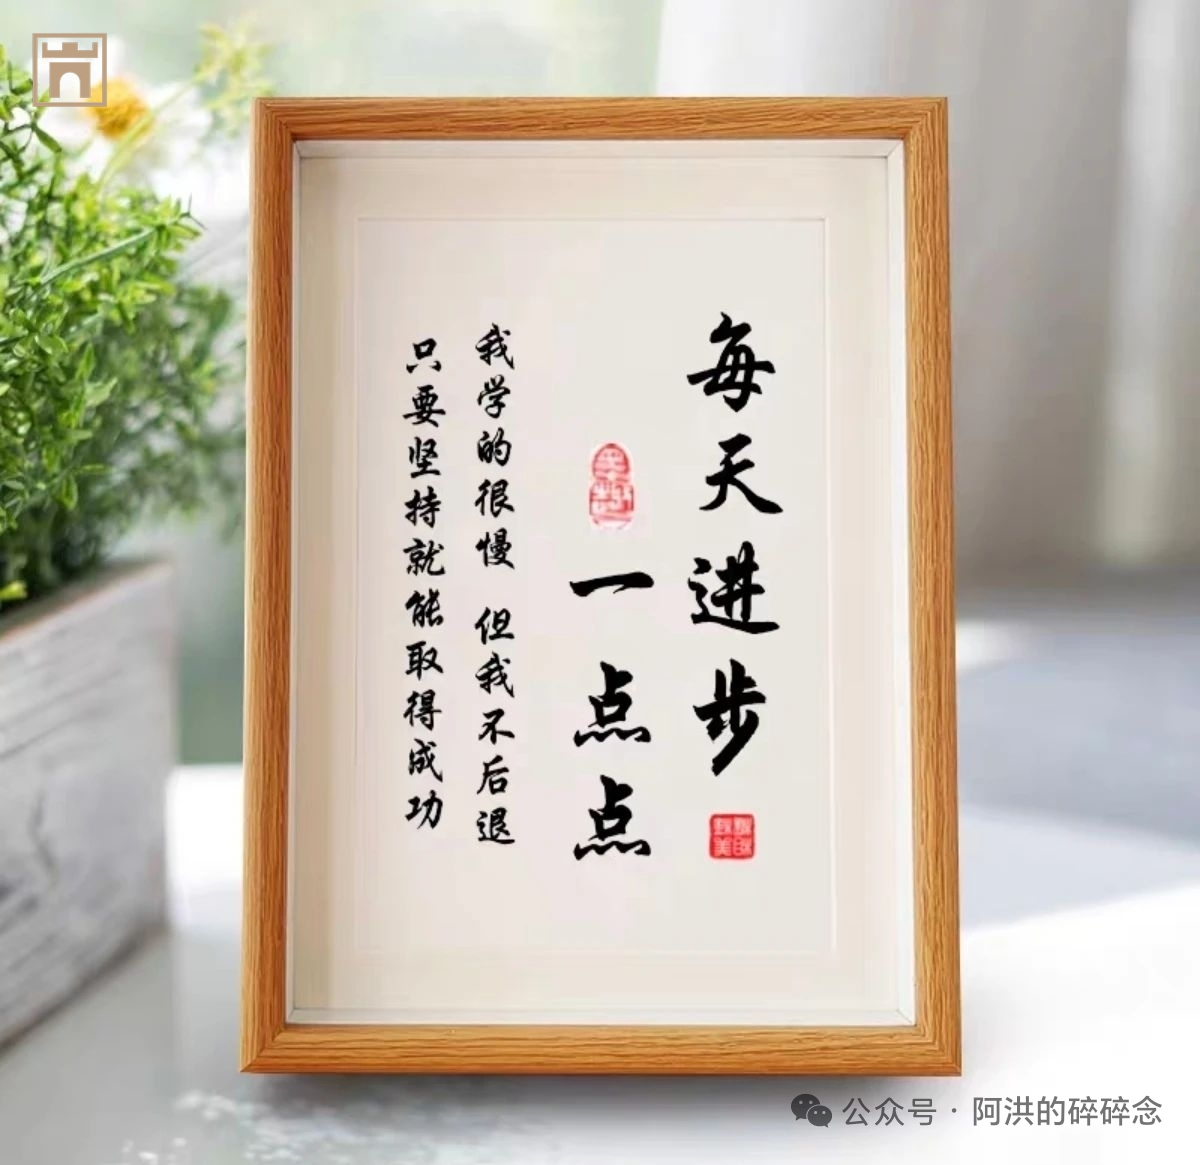 每天进步
一点点
我学的很慢 但我不后退
只要坚持就能取得成功
公众号 · 阿洪的碎碎念